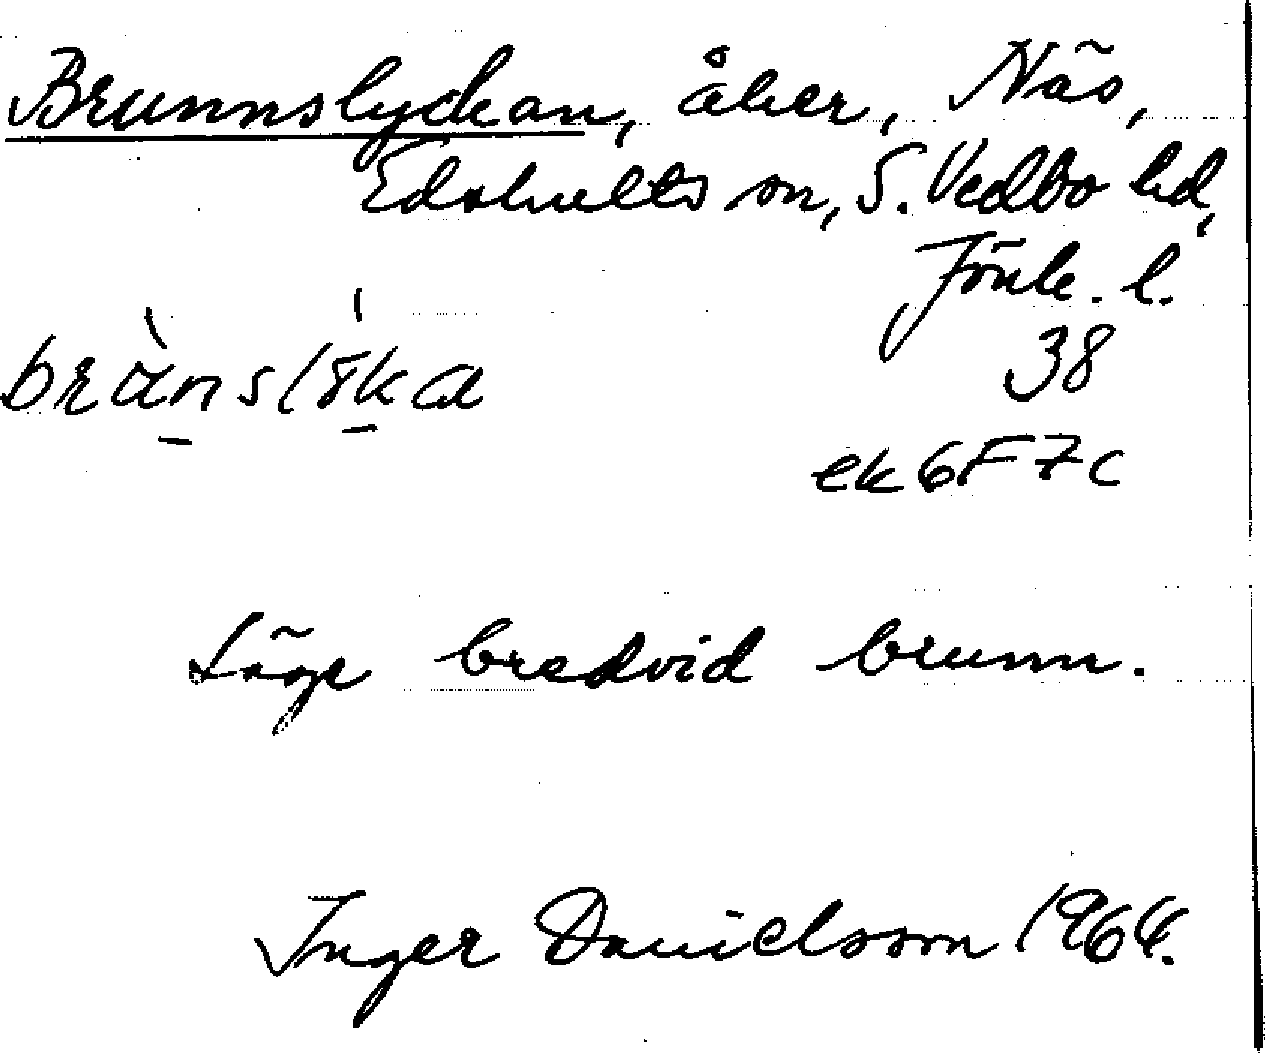 Brunnslyckan, åker, Näs,
Edshults sn, S. Vedbo hd,
Jönk. l.
38
ek 6F7c
Läge bredvid brunn.
Inger Danielsson 1964.